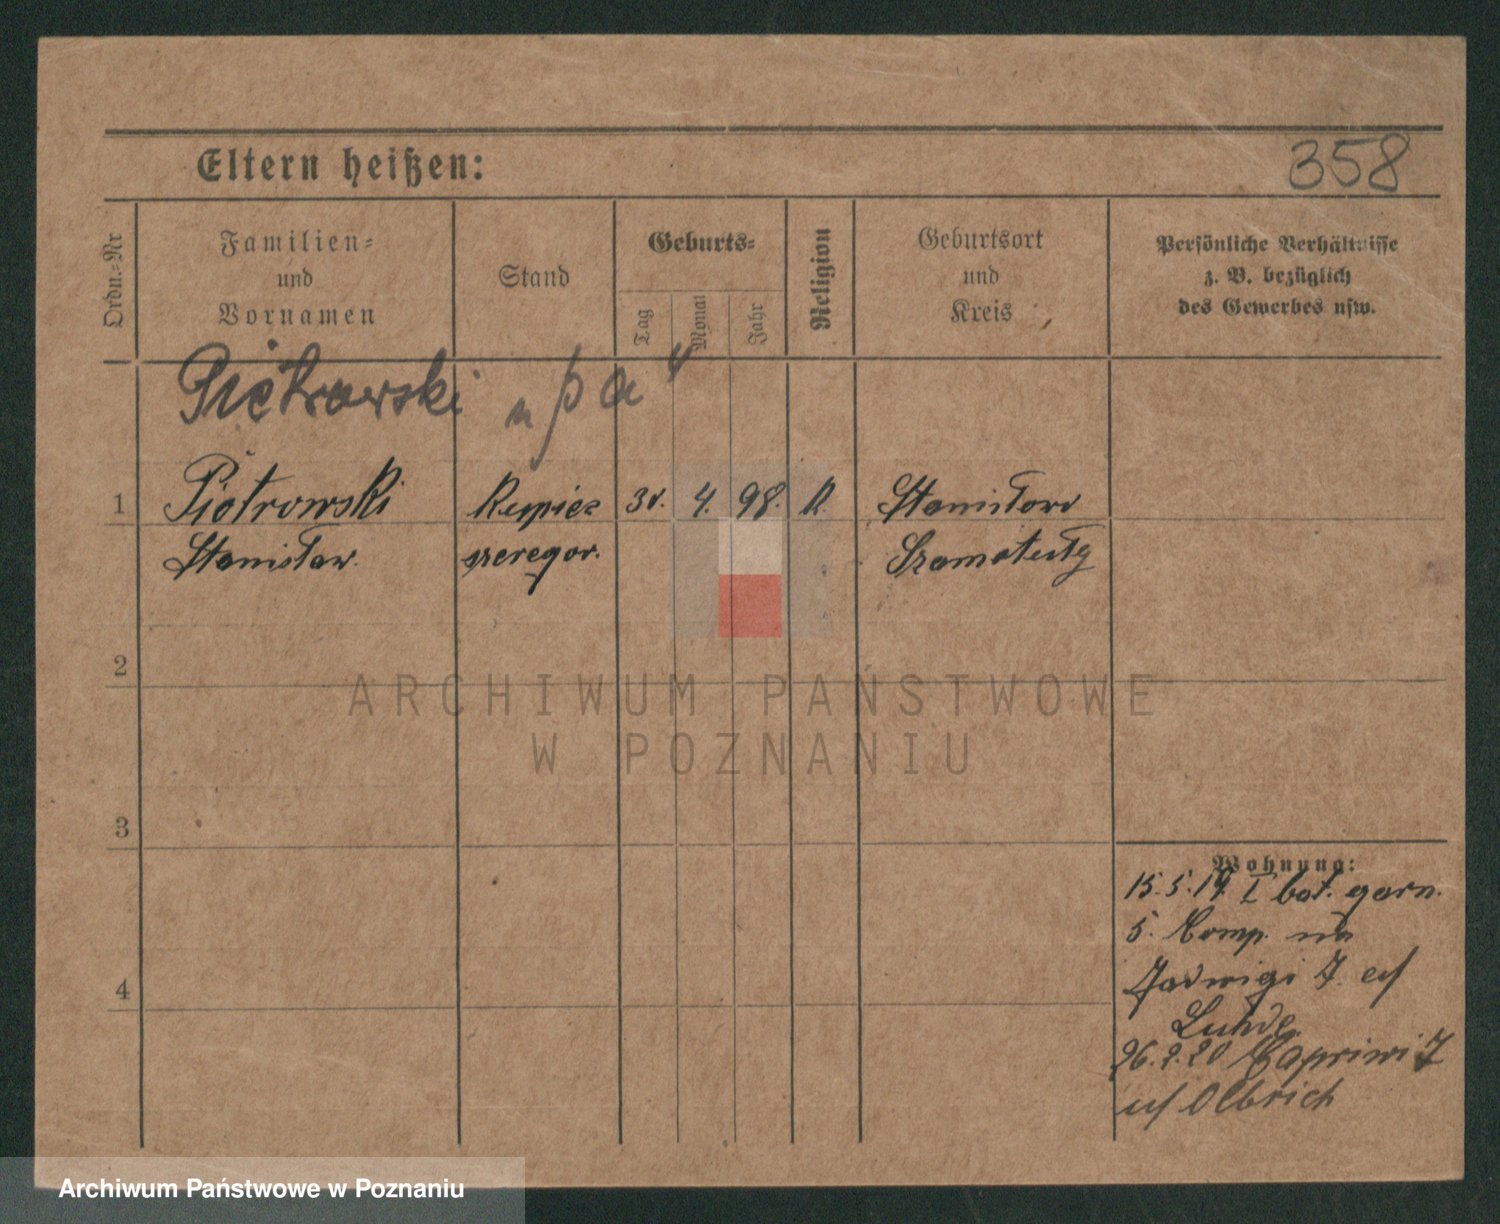 Eltern heißen:
358
Ordn.-Nr
Familien-
und
Vornamen
Stand
Geburts-
Tag
Monat
Jahr
Religion
Geburtsort
und
Kreis
Persönliche Verhältnisse
z. B. bezüglich
des Gewerbes usw.
Piotrowski
1 Piotrowski Kupiec 4. 98. K. Stanisław
Stanisław. szeregow.
2
3
4
Wohnung:
15.5.19. I bat. garn.
5. Komp. na
Jadwigi 7.
26.2.20 Capriwi 7
Olbrich
ARCHIWUM PAŃSTWOWE
W POZNANIU
Archiwum Państwowe w Poznaniu